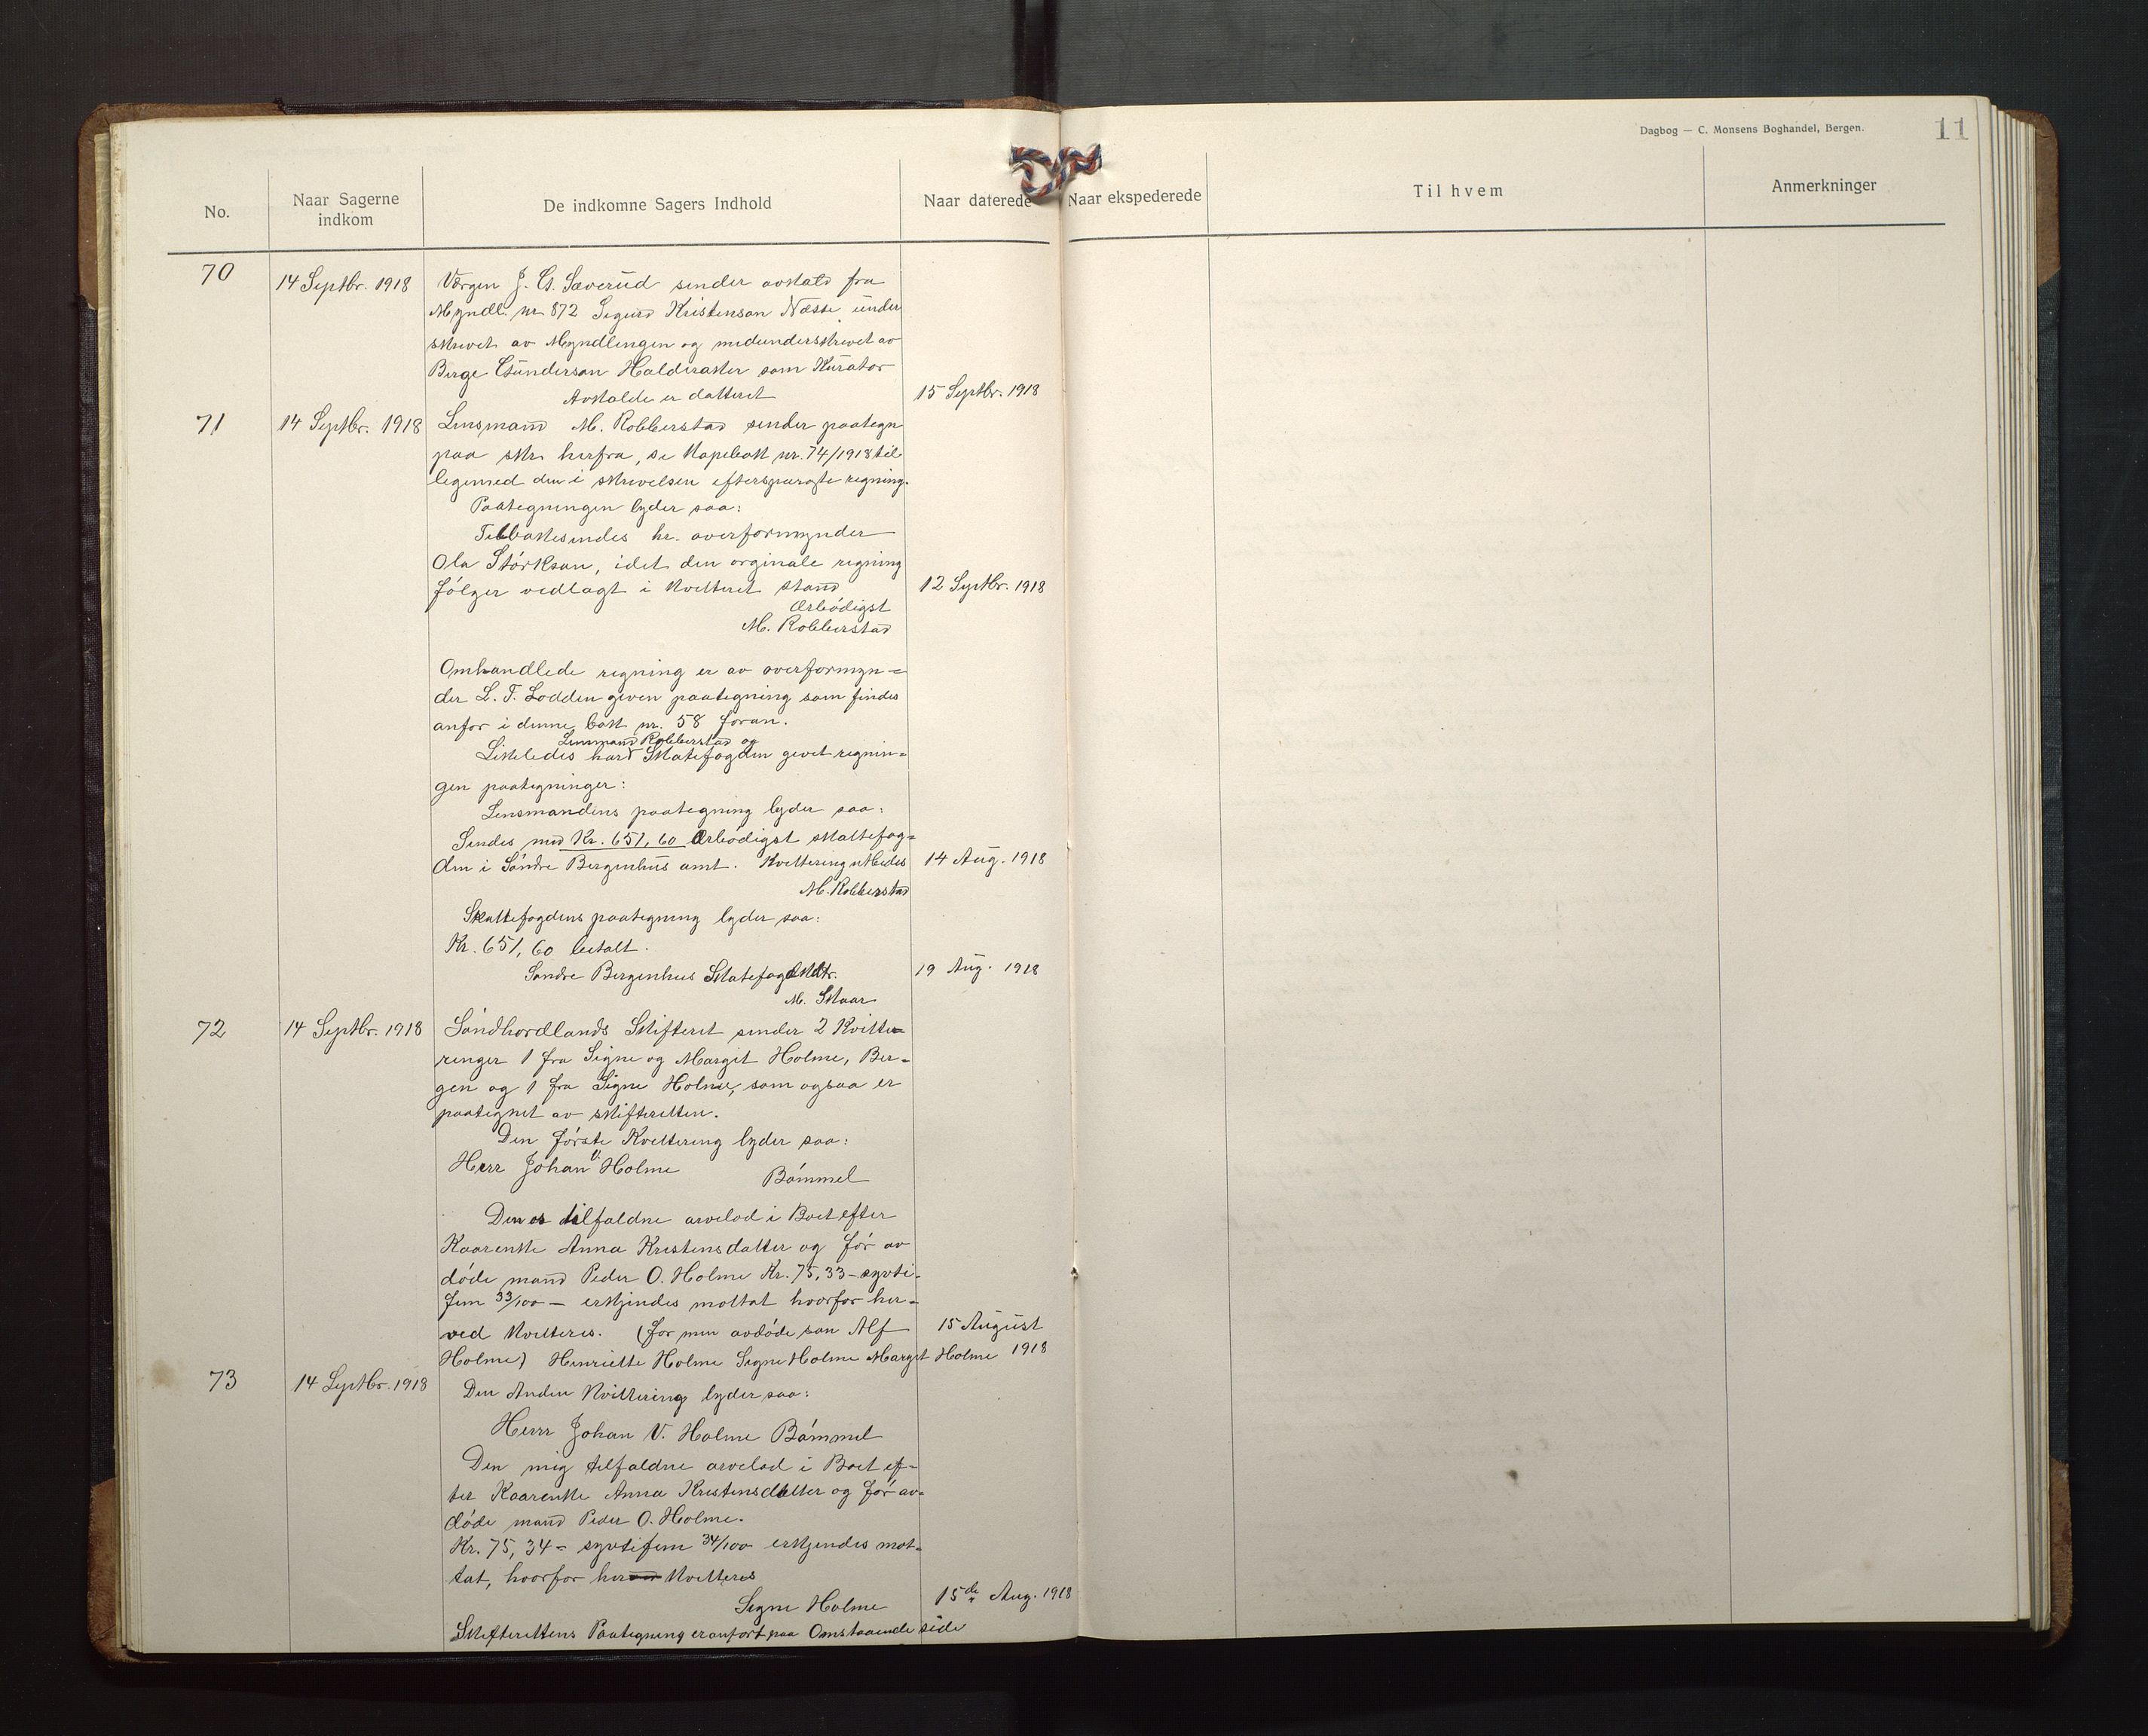 Dagbog — C. Monsens Boghandel, Bergen.
11
No.
Naar Sagerne
indkom
De indkomne Sagers Indhold
Naar daterede
Naar ekspederede
Til hvem
Anmerkninger
70
14 Septbr. 1918
Værgen J. G. Sæverud sender avkald fra
Myndl. nr 872 Sigurd Kristenson Næsse under
skrevet av Myndlingen og medunderskrevet av
Berge Gunderson Halderaker som Kurator
Avkalde er datteret
15 Septbr. 1918
71
14 Septbr. 1918
Lensmand M. Robberstad sender paategn
paa skr. herfra, se Kopibok nr. 74/1918 til
legemed den i skrivelsen efterspurgte regning.
Paategningen lyder saa:
Tilbakesendes hr. overformynder
Ola Størkson, idet den orginale regning
følger vedlagt i Kvitteret stand
12 Septbr. 1918
Ærbødigst
M. Robberstad
Omhandlede regning er av overformyn=
der L. T. Lodden given paategning som findes
anfør i denne bok nr. 58 foran.
Lensmand Robberstad og
Likeledes har Skatefogden gevet regnin=
gen paategninger:
Lensmandens paategning lyder saa:
Sendes med Kr. 651,60 Ærbødigst skattefog=
den i Søndre Bergenhus amt. Kvittering utbedes
14 Aug. 1918
M. Robberstad
Skattefogdens paategning lyder saa:
Kr. 651,60 betalt.
Søndre Bergenhus Skatefogdktr.
19 Aug. 1918
M. Skaar
72
14 Septbr. 1918
Søndhordlands Skifteret sender 2 Kvitte=
ringer 1 fra Signe og Margit Holme, Ber=
gen og 1 fra Signe Holme, som ogsaa er
paategnet av skifteretten.
Den første Kvittering lyder saa:
Herr Johan V. Holme
Bømmel
Den os tilfaldne arvelod i Boet efter
Kaarenke Anna Kristensdatter og før av
døde mand Peder O. Holme Kr. 75,33 – syvti-
fem 33/100 — erkjendes mottat hvorfor her=
ved Kvitteres. (for min avdøde søn Alf
15 August
Holme) Henriette Holme Signe Holme Margit Holme 1918
73
14 Septbr. 1918
Den Anden Kvittering lyder saa:
Herr Johan V. Holme Bømmel
Den mig tilfaldne arvelod i Boet ef=
ter Kaarenke Anna Kristensdatter og før av=
døde mand Peder O. Holme.
Kr. 75,34 = syvtifem 34/100 erkjendes mot=
tat, hvorfor her Kvitteres
Signe Holme
15de Aug. 1918
Skifterettens Paategning er anført paa Omstaaende side